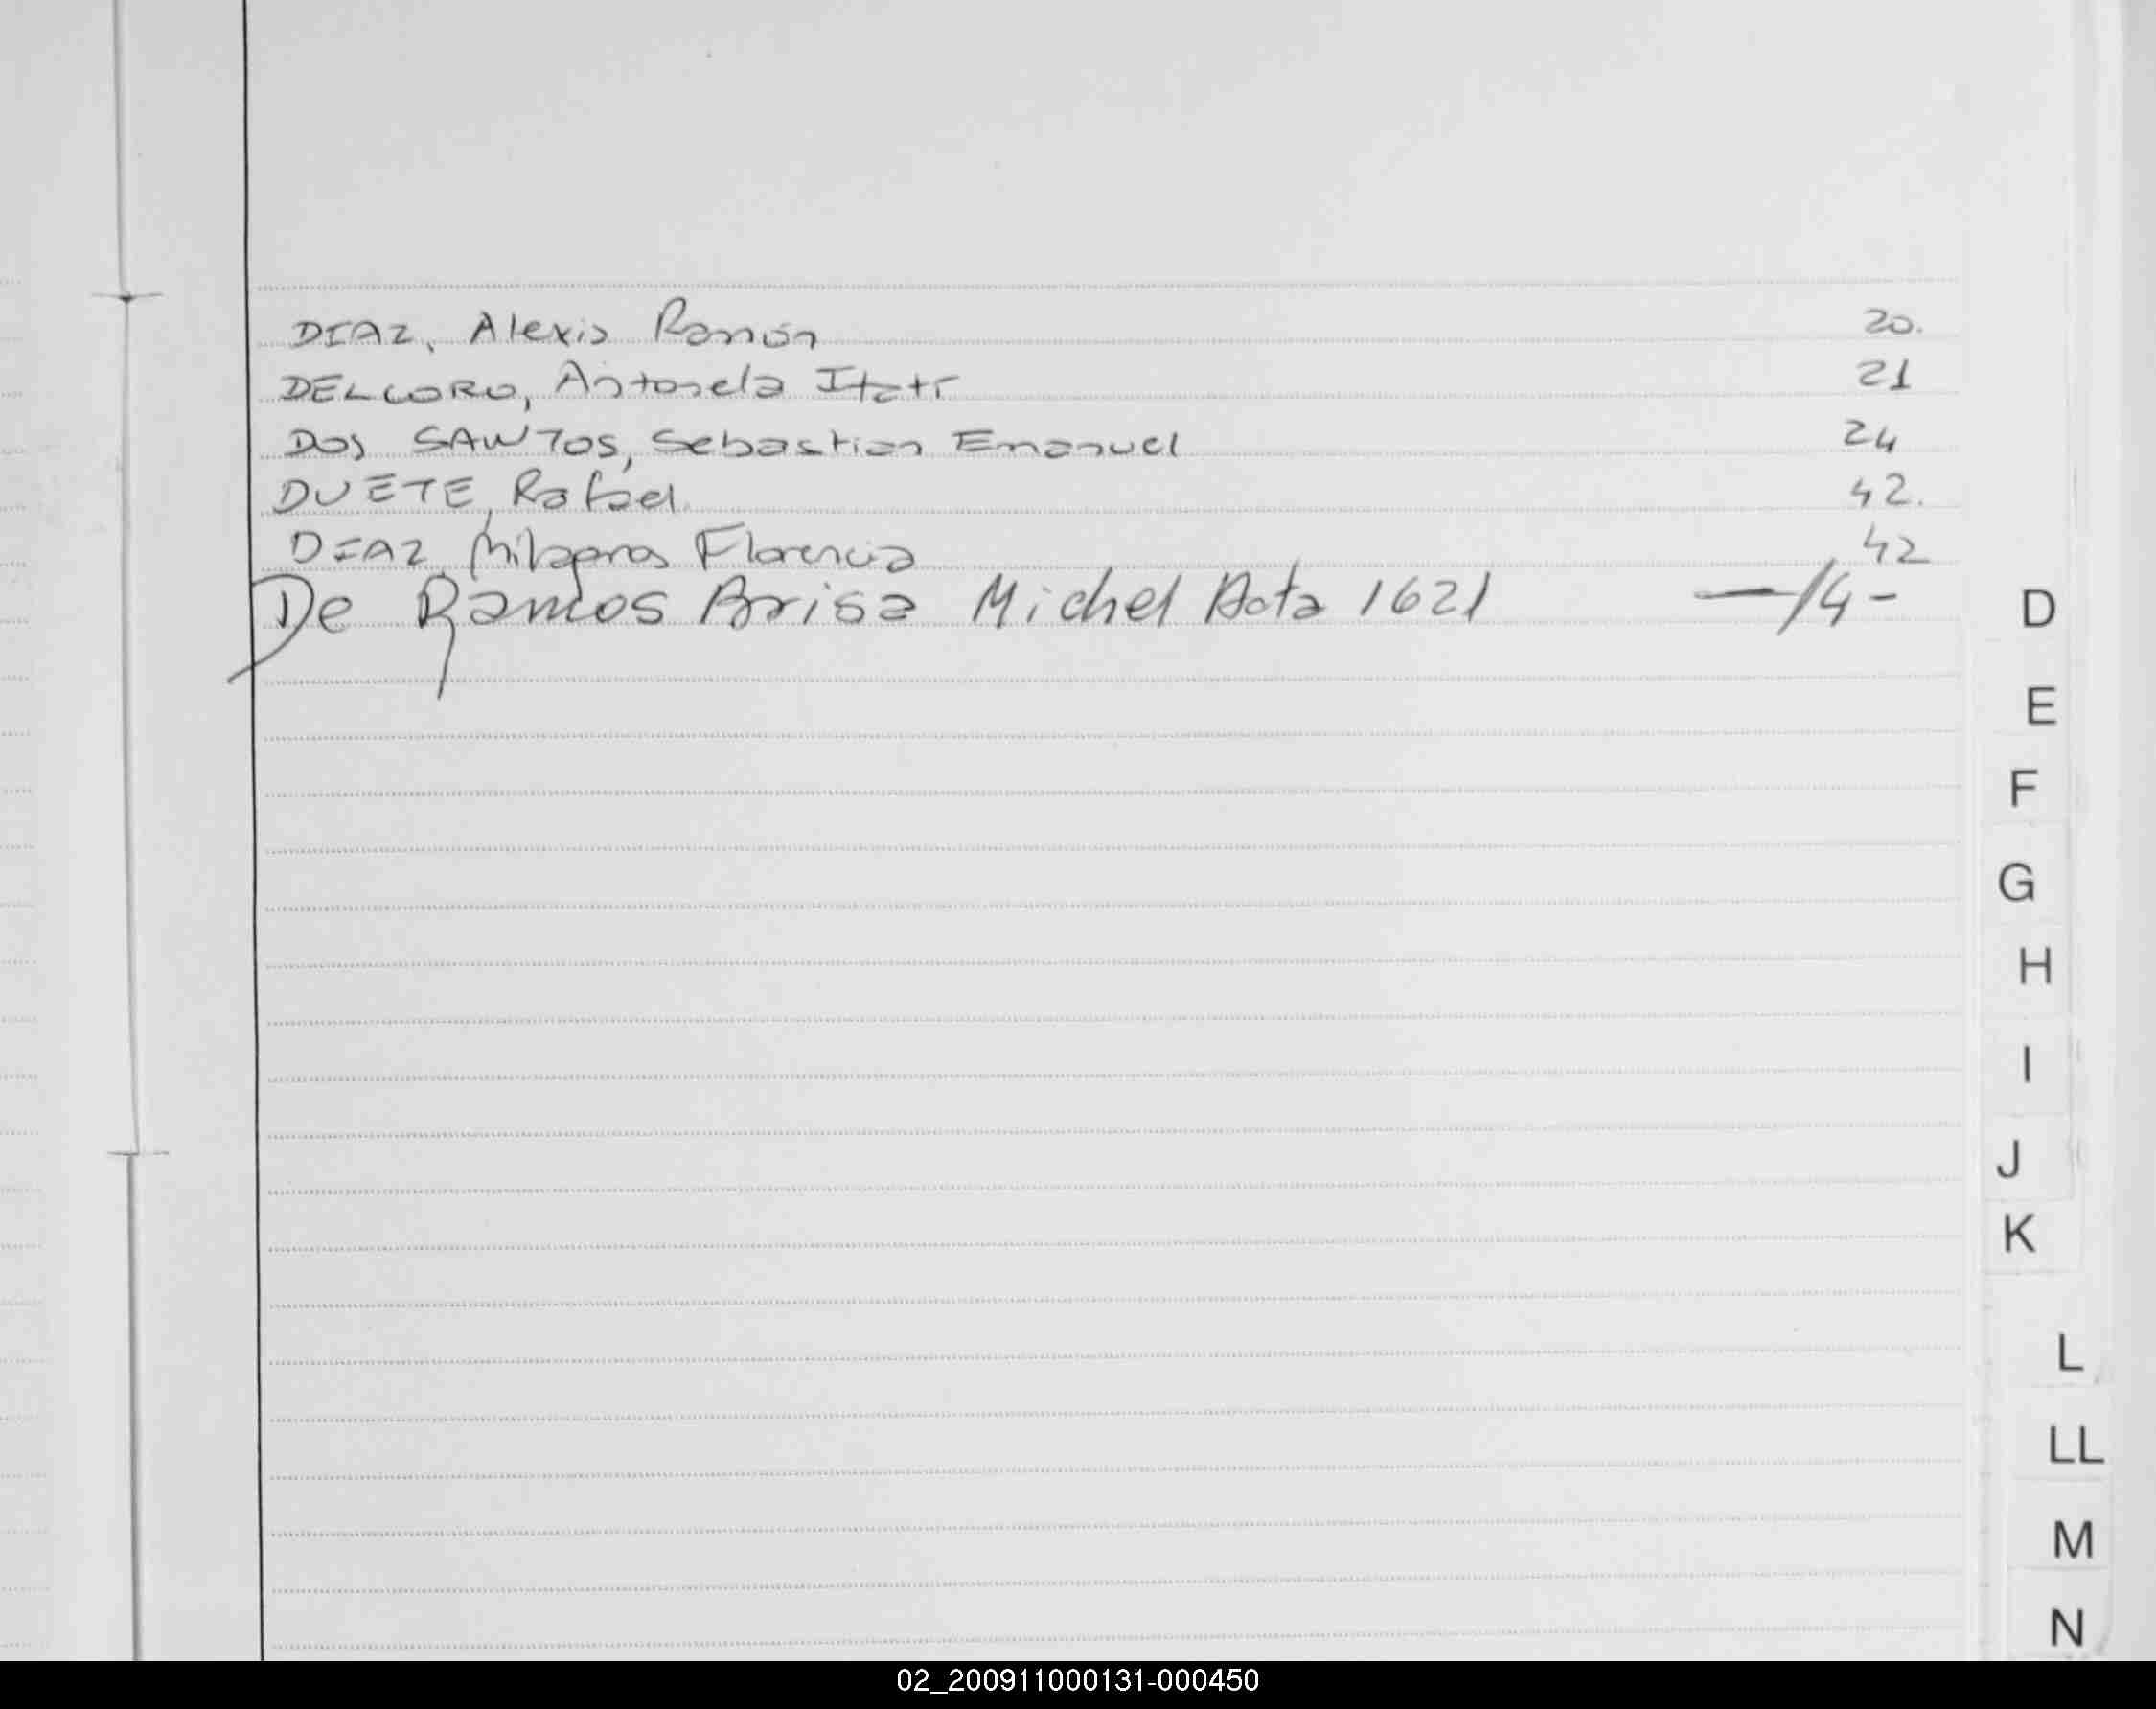 DIAZ, Alexis Ramón 20.
DELCORO, Antonela Itatí 21
DOS SANTOS, Sebastian Emanuel 24
DUETE, Rafael. 42.
DIAZ, Milagros Florencia 42
De Ramos Brisa Michel Acta 1621 —/4-
D
E
F
G
H
I
J
K
L
LL
M
N
02_200911000131-000450